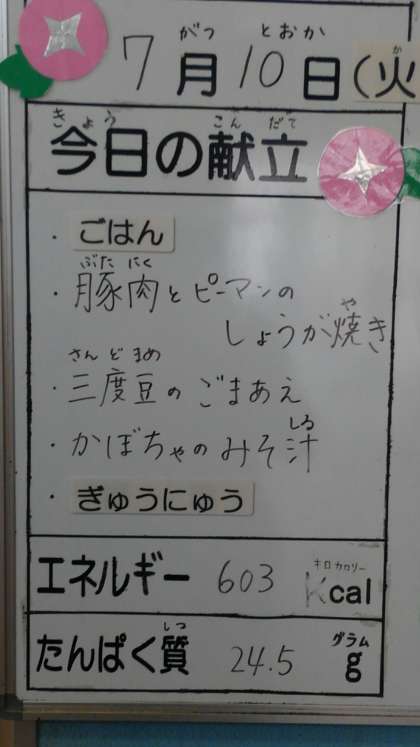 がつ とおか か
7月10日(火
きょう こん だて
今日の献立
・ごはん
ぶた にく
・豚肉とピーマンの
や
しょうが焼き
さん ど まめ
・三度豆のごまあえ
しる
・かぼちゃのみそ汁
・ぎゅうにゅう
キロ カロリー
エネルギー 603 Kcal
しつ グラム
たんぱく質 24.5 g